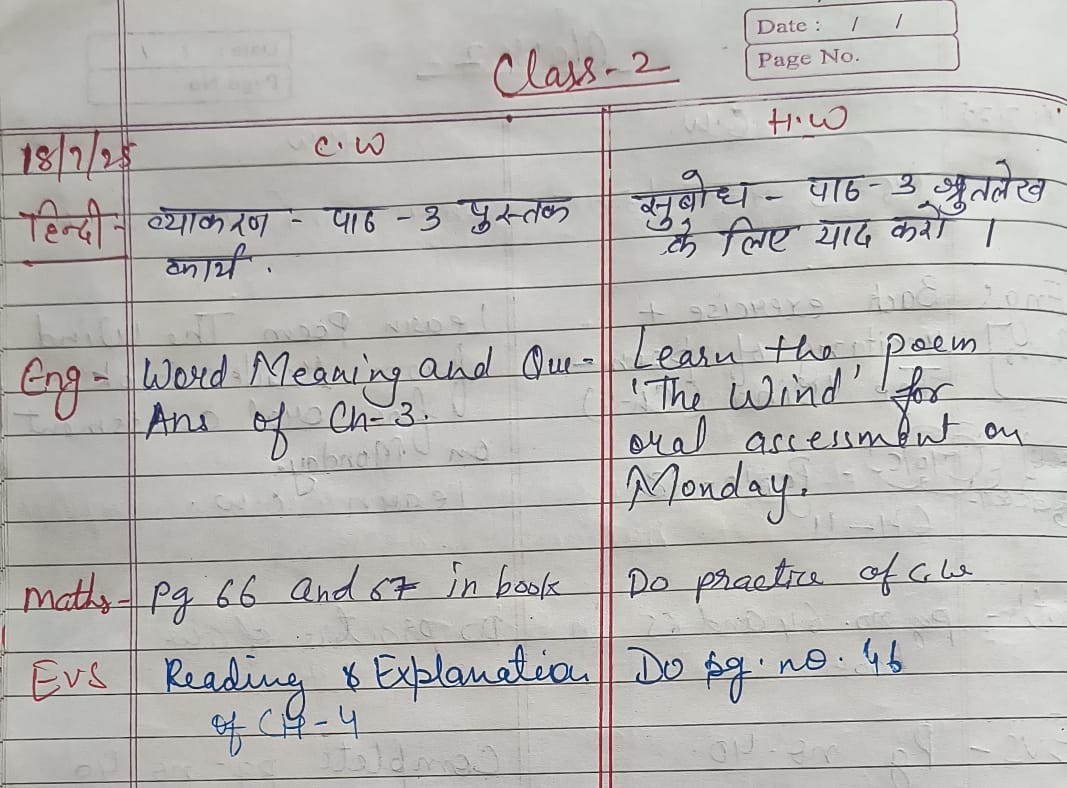 Date : / /
Page No.
Class-2
18/7/25 C.W H.W
हिन्दी- व्याकरण - पाठ - 3 पुस्तक
कार्य .
सुबोध - पाठ - 3 श्रुतलेख
के लिए याद करो ।
Eng - Word Meaning and Que-
Ans of Ch-3.
Learn the poem
'The Wind' for
oral assessment on
Monday.
Maths - Pg 66 and 67 in book
Do practice of C.W
EVS Reading & Explanation
of CH-4
Do pg. no. 46